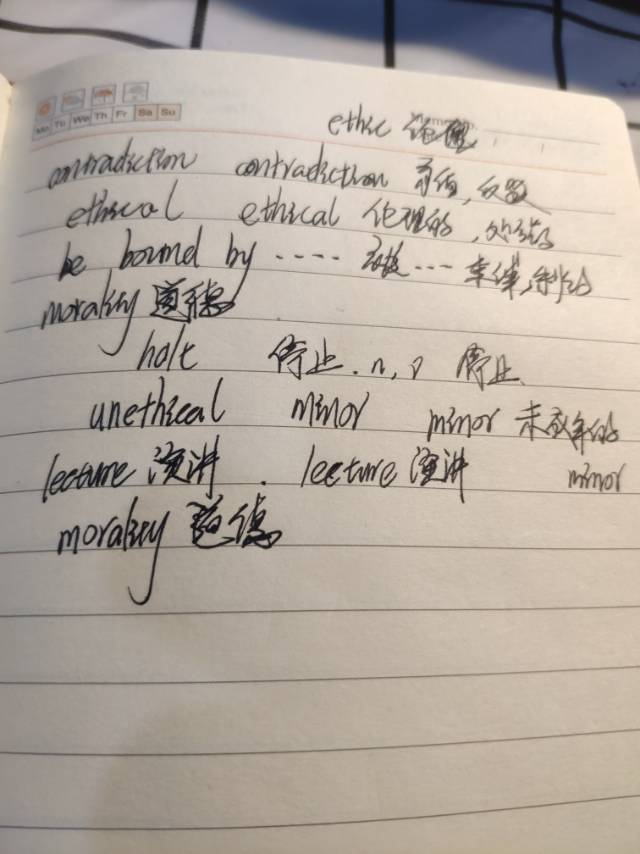 Mo Tu We Th Fr Sa Su
ethic
contradiction contradiction 矛盾,
ethical ethical 伦理的,
be bound by ····· ···
morality 道德
halt 停止. n, v 停止.
unethical minor minor 未成年的
lecture 演讲. lecture 演讲 minor
morality 道德